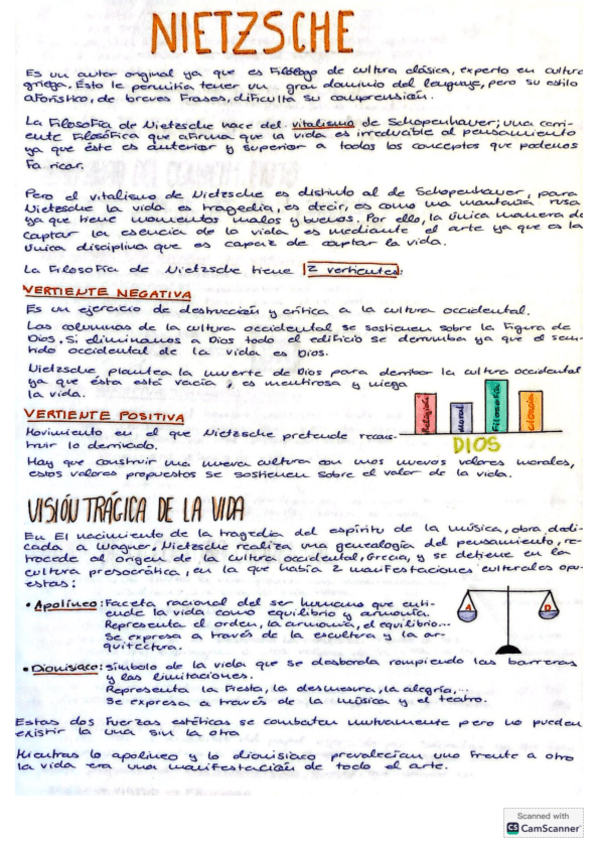 NIETZSCHE
Es un autor original ya que es Filólogo de cultura clásica, experto en cultura
griega. Esto le permitía tener un gran dominio del lenguaje, pero su estilo
aforístico, de breves frases, dificulta su comprensión.
La Filosofía de Nietzsche nace del vitalismo de Schopenhauer; una corri-
ente Filosófica que afirma que la vida es irreducible al pensamiento
ya que éste es anterior y superior a todos los conceptos que podemos
fabricar.
Pero el vitalismo de Nietzsche es distinto al de Schopenhauer, para
Nietzsche la vida es tragedia, es decir, es como una montaña rusa
ya que tiene momentos malos y buenos. Por ello, la única manera de
captar la esencia de la vida es mediante el arte ya que es la
única disciplina que es capaz de captar la vida.
La Filosofía de Nietzsche tiene 2 vertientes:
VERTIENTE NEGATIVA
Es un ejercicio de destrucción y crítica a la cultura occidental.
Las columnas de la cultura occidental se sostienen sobre la Figura de
Dios. Si eliminamos a Dios todo el edificio se derrumba ya que el sen-
tido occidental de la vida es Dios.
Nietzsche plantea la muerte de Dios para derribar la cultura occidental
ya que ésta está vacía, es mentirosa y niega
la vida.
Religión
Moral
Filosofía
Ciencia
DIOS
VERTIENTE POSITIVA
Movimiento en el que Nietzsche pretende recons-
truir lo derribado.
Hay que construir una nueva cultura con unos nuevos valores morales,
estos valores propuestos se sostienen sobre el valor de la vida.
VISIÓN TRÁGICA DE LA VIDA
En El nacimiento de la tragedia del espíritu de la música, obra dedi-
cada a Wagner, Nietzsche realiza una genealogía del pensamiento, re-
trocede al origen de la cultura occidental, Grecia, y se detiene en la
cultura presocrática, en la que había 2 manifestaciones culturales opu-
estas:
• Apolíneo: Faceta racional del ser humano que enti-
ende la vida como equilibrio y armonía.
Representa el orden, la armonía, el equilibrio...
Se expresa a través de la escultura y la ar-
quitectura.
A
D
• Dionisíaco: símbolo de la vida que se desborda rompiendo las barreras
y las limitaciones.
Representa la Fiesta, la desmesura, la alegría,...
Se expresa a través de la música y el teatro.
Estas dos fuerzas estéticas se combaten mutuamente pero no pueden
existir la una sin la otra.
Mientras lo apolíneo y lo dionisíaco prevalecían uno frente a otro
la vida era una manifestación de todo el arte.
Scanned with
CS CamScanner